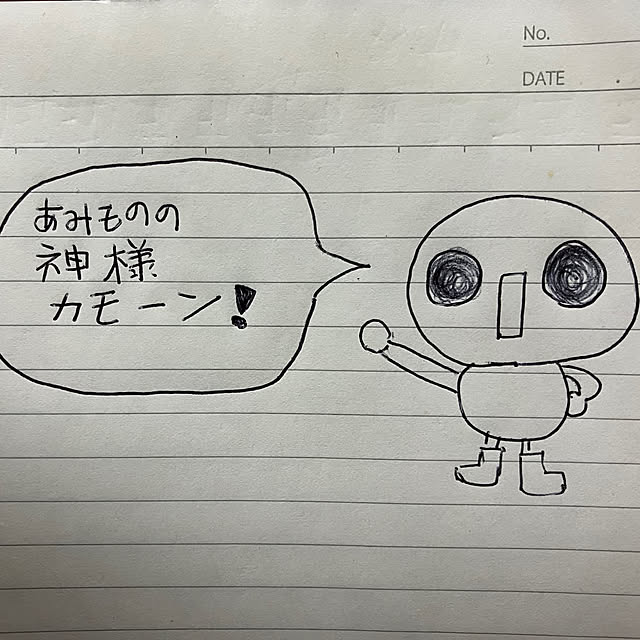 No.
DATE
あみものの
神様
カモーン!